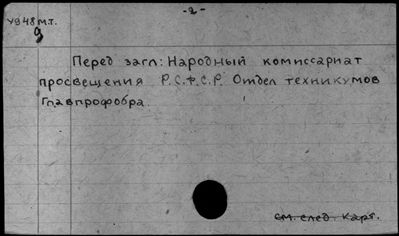 -2-
У948 м.т.
9
Перед загл: Народный комиссариат
просвещения Р.С.Ф.С.Р. Отдел техникумов
Главпрофобра
см. след. карт.